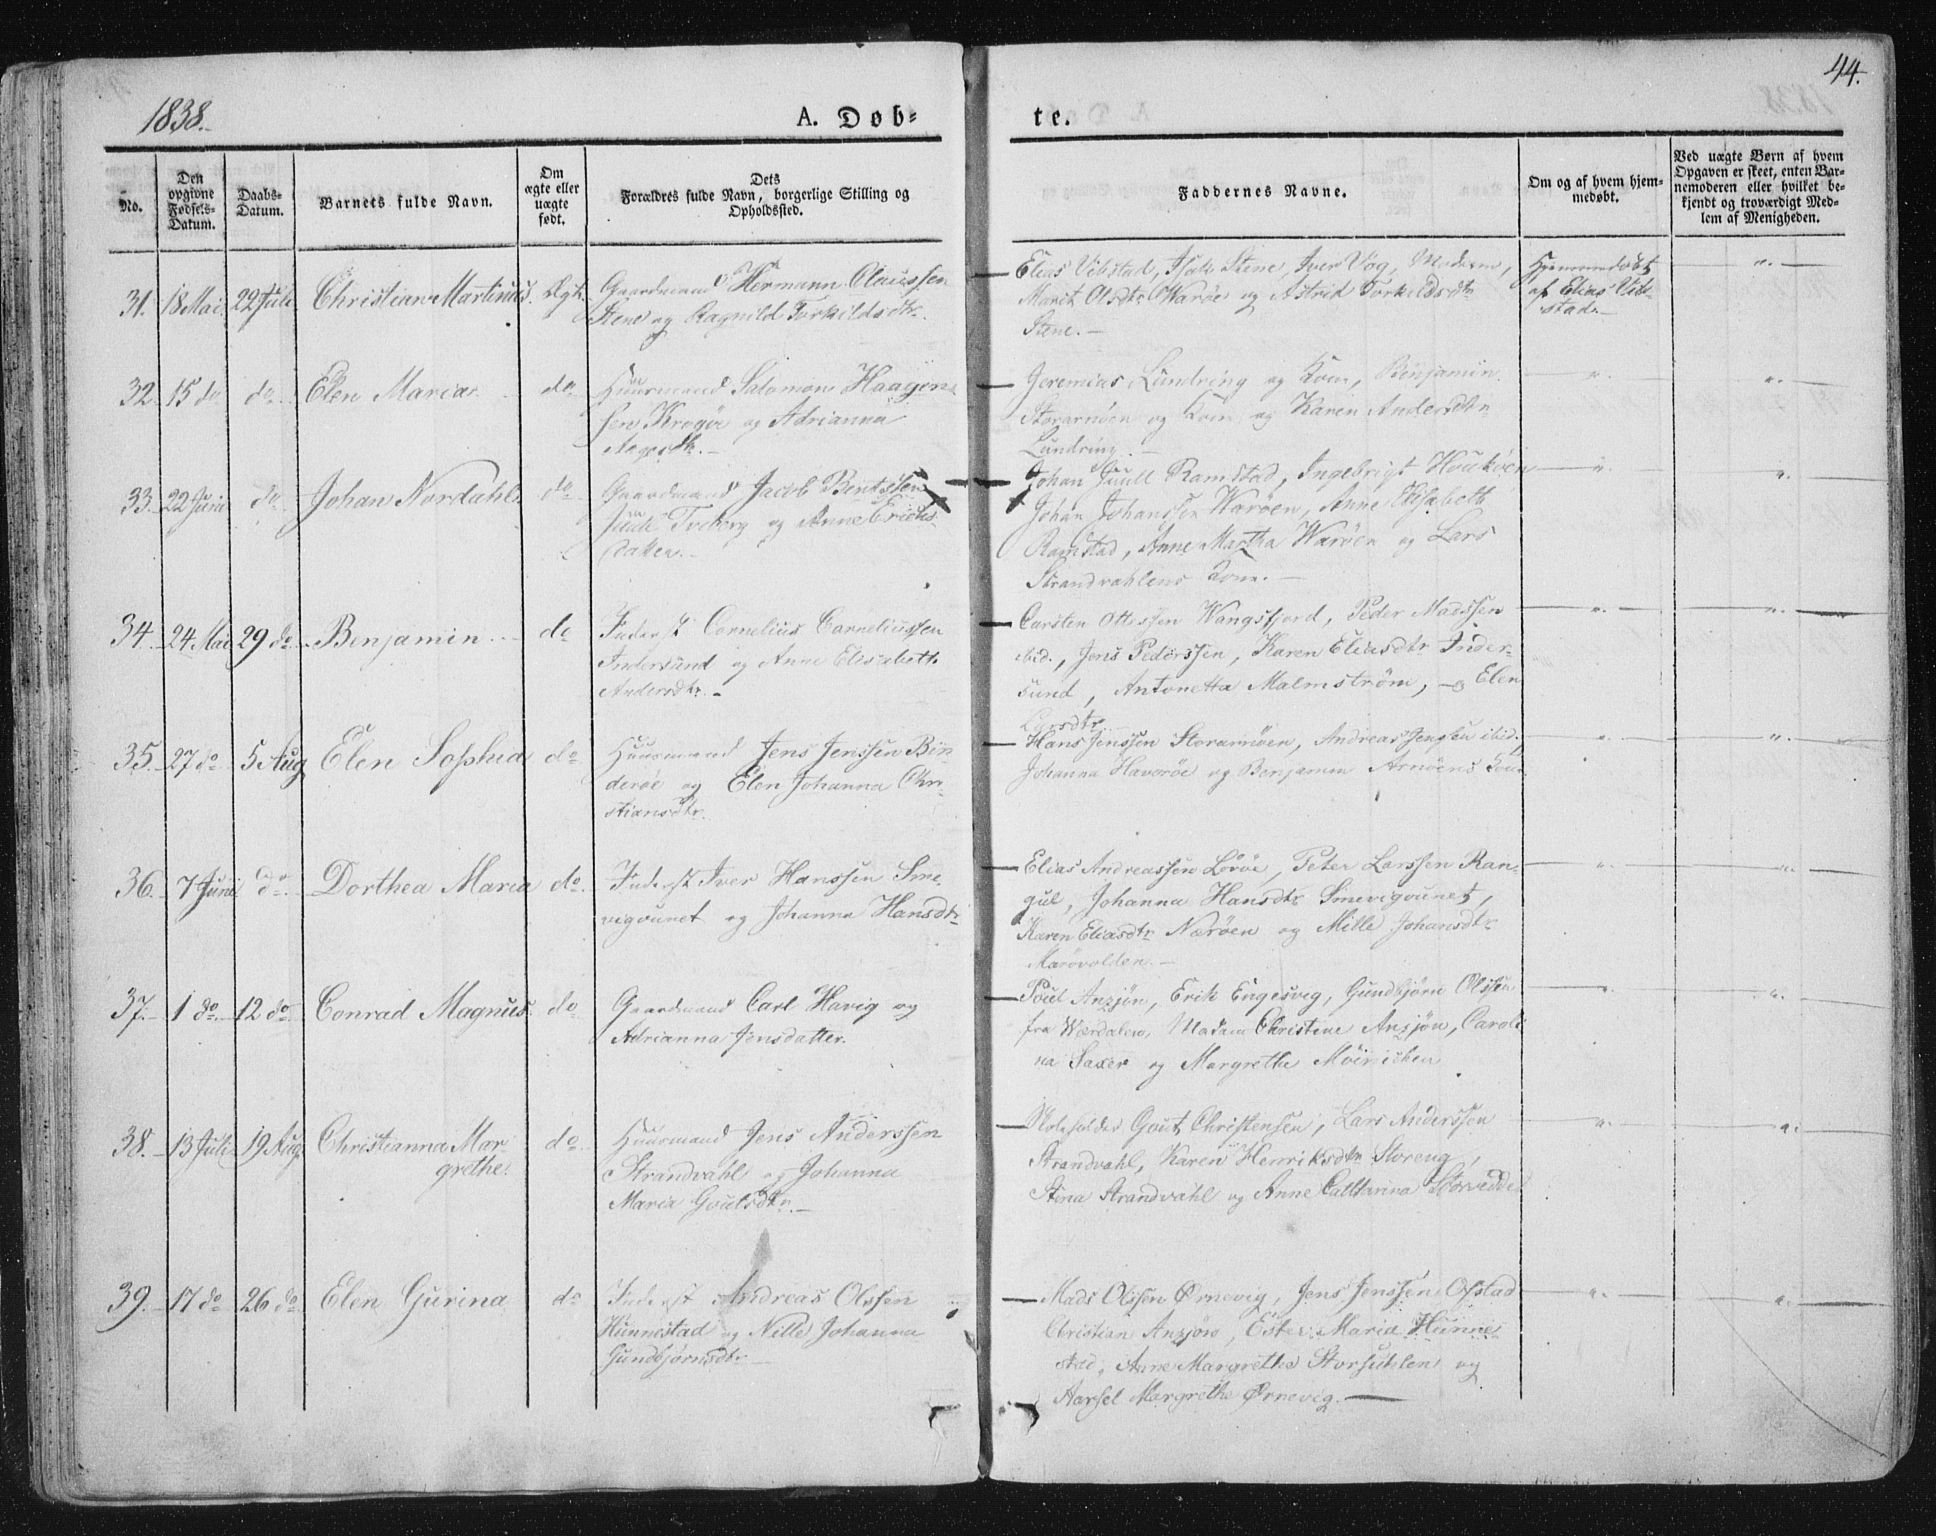 1838.
A. Døb=
te.
44.
No.
Den opgivne Fødsels-Datum.
Daabs-Datum.
Barnets fulde Navn.
Om ægte eller uægte født.
Dets Forældres fulde Navn, borgerlige Stilling og Opholdssted.
Faddernes Navne.
Om og af hvem hjemmedøbt.
Ved uægte Børn af hvem Opgaven er skeet, enten Barnemoderen eller hvilket bekjendt og troværdigt Medlem af Menigheden.
31. 18 Mai 22 Juli Christian Martinus. Ægte
Gaardmand Hermann Olaussen
Stene og Ragnild Torkildsdtr.
Elias Vibstad, Isak Stene, Iver Vog, Madam,
Marit Olsdtr Warøe og Astrid Torkildsdtr
Stene.—
Hjemmedøbt
af Elias Vib-
stad.—
32. 15 do do Elen Maria. do
Huusmand Salomon Haagen-
sen Krogøe og Adrianna
Aagesdtr.—
Jeremias Lundring og Kone, Benjamin
Storarnøen og Kone og Karen Andersdtr
Lundring.—
33. 22 Juni do Johan Nordahl. do
Gaardmand Jacob Bentssen
Juul Tviberg og Anne Erichs-
datter.—
Johan Juull Ramstad, Ingebrigt Houkøen
Johan Johanssen Warøen, Anne Elisabeth
Ramstad, Anne Martha Warøen og Lars
Strandvahlens Kone.—
34. 24 Mai 29 do Benjamin. do
Inderst Cornelius Corneliussen
Indersund og Anne Elisabeth
Andersdtr.—
Carsten Ottessen Wangsfjord, Peder Madssen
ibid., Jens Pederssen, Karen Eliasdtr Inder-
sund, Antonetta Malmstrøm, og Elen
Larsdtr
35. 27 do 5 Aug Elen Sophia do
Huusmand Jens Jenssen Bin-
derøe og Elen Johanna Chri-
stiansdtr.
Hans Jenssen Storarnøen, Andreas Jenssen ibid.,
Johanna Havorøe og Benjamin Arnøens Kone
36. 7 Juni do Dorthea Maria do.
Inderst Iver Hanssen Sme-
vigvunet og Johanna Hansdtr
Elias Andreassen Løvøe, Peter Larssen Ran-
gul, Johanna Hansdtr Smevigvunet,
Karen Eliasdtr Nærøen og Mille Johansdtr
Marøvolden.—
37. 1 do 12 do Conrad Magnus. do
Gaardmand Carl Havig og
Adrianna Jensdatter.
Poul Anzjøn, Erik Engesvig, Gundbjørn Olssen
fra Værdalen, Madam Christine Anzjøn, Caroli-
na Saxer og Margrethe Möinichen
38. 13 Juli 19 Aug. Christianna Mar-
grethe. do
Huusmand Jens Anderssen
Strandvahl og Johanna
Maria Goutsdtr.—
Skoleholder Gout Christensen, Lars Anderssen
Strandvahl, Karen Henriksdtr Storeng,
Stina Strandvahl og Anne Catharina
39. 17 do 26 do Elen Gurina do
Inderst Andreas Olssen
Hunnestad og Nille Johanna
Gundbjørnsdtr
Mads Olssen Ørnevig, Jens Jenssen Ofstad
Christian Anzjøn, Ester Maria Hunne-
stad, Anne Margrethe Storsuhlen og
Aarsel Margrethe Ørnevig.—